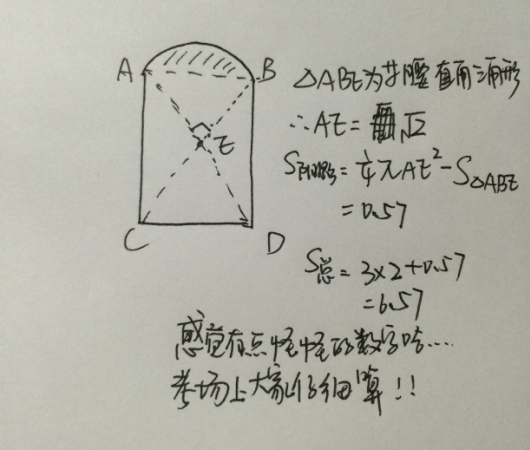 A
B
E
C
D
△ABE为等腰直角三角形
∴AE=√2
S阴影=1/4πAE²-S△ABE
=0.57
S总=3×2+0.57
=6.57
感觉有点怪怪的数字哈....
考场上大家仔细算!!